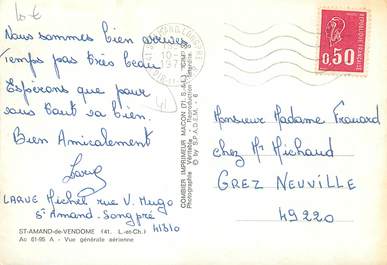 10 €
Nous sommes bien arrivés
Temps pas très beau
Esperons que pour
vous tout va bien.
Bien Amicalement
LARUE Michel rue V. Hugo
St Amand-Longpré
41310
ST-AMAND-de-VENDOME (41. L.-et-Ch.)
Ac 61-95 A - Vue générale aérienne
COMBIER IMPRIMEUR MACON (71. S.-&-L.) "CIM"
Photographie Véritable - Reproduction Interdite
© by S.P.A.D.E.M. - 6
41 ST AMAND LONGPRE
0,50
REPUBLIQUE FRANÇAISE
Monsieur Madame Frouard
chez Mr Michaud
GREZ NEUVILLE
49220